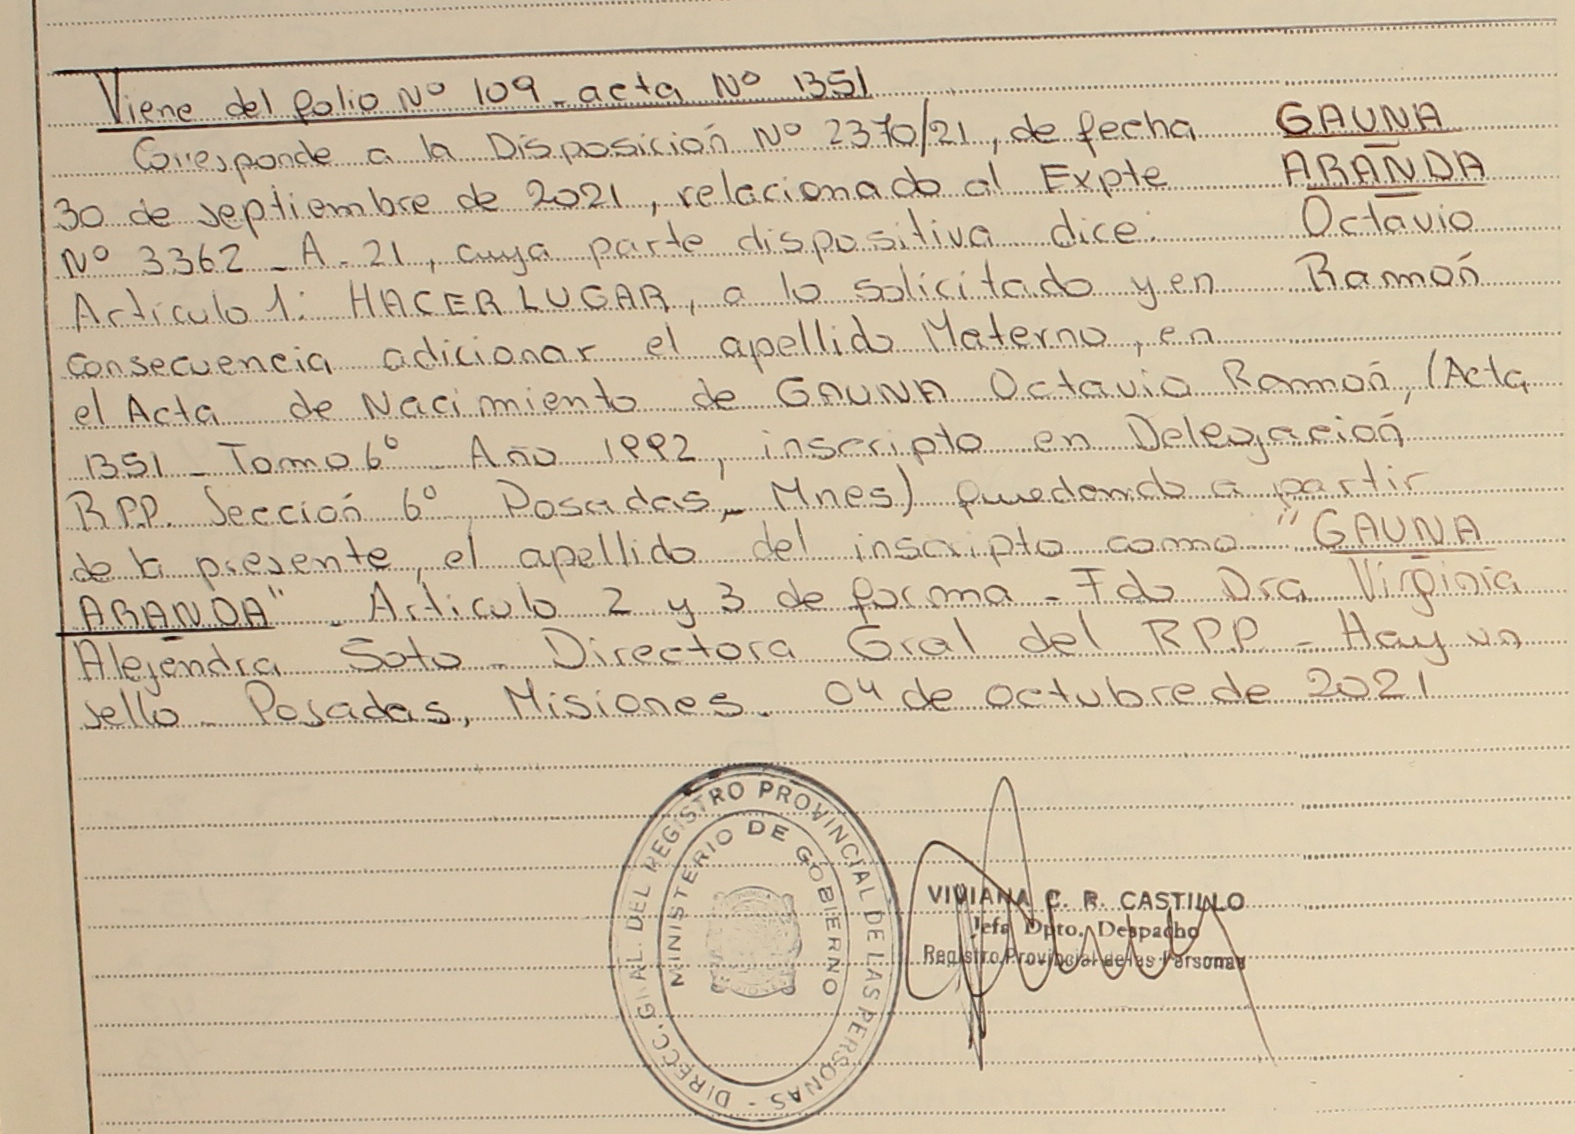 Viene del folio Nº 109 - acta Nº 1351
Corresponde a la Disposición Nº 2370/21, de fecha
30 de septiembre de 2021, relacionado al Expte
Nº 3362 - A - 21, cuya parte dispositiva dice:
Artículo 1: HACER LUGAR, a lo solicitado y en
consecuencia adicionar el apellido Materno, en
el Acta de Nacimiento de GAUNA Octavio Ramón, (Acta
1351 - Tomo 6º - Año 1992, inscripto en Delegación
RPP. Sección 6º Posadas, Mnes) quedando a partir
de la presente, el apellido del inscripto como "GAUNA
ARANDA" - Artículo 2 y 3 de forma - Fdo Dra Virginia
Alejandra Soto - Directora Gral del RPP - Hay un
sello - Posadas, Misiones. 04 de octubre de 2021
GAUNA
ARANDA
Octavio
Ramón
DIRECC. GRAL. DEL REGISTRO PROVINCIAL DE LAS PERSONAS -
MINISTERIO DE GOBIERNO
VIVIANA C. R. CASTILLO
Jefa Dpto. Despacho
Registro Provincial de las Personas